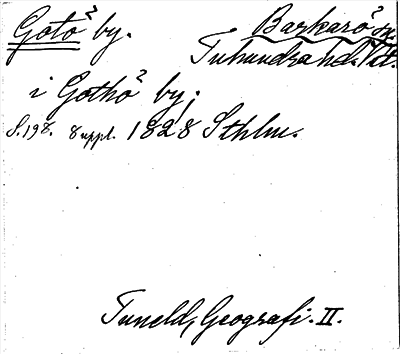 Gotö by. Barkarö sn.
Tuhundra hd. Vstm.
i Gothö by;
S. 198. 8 uppl. 1828 Sthlm.
Tuneld, Geografi. II.